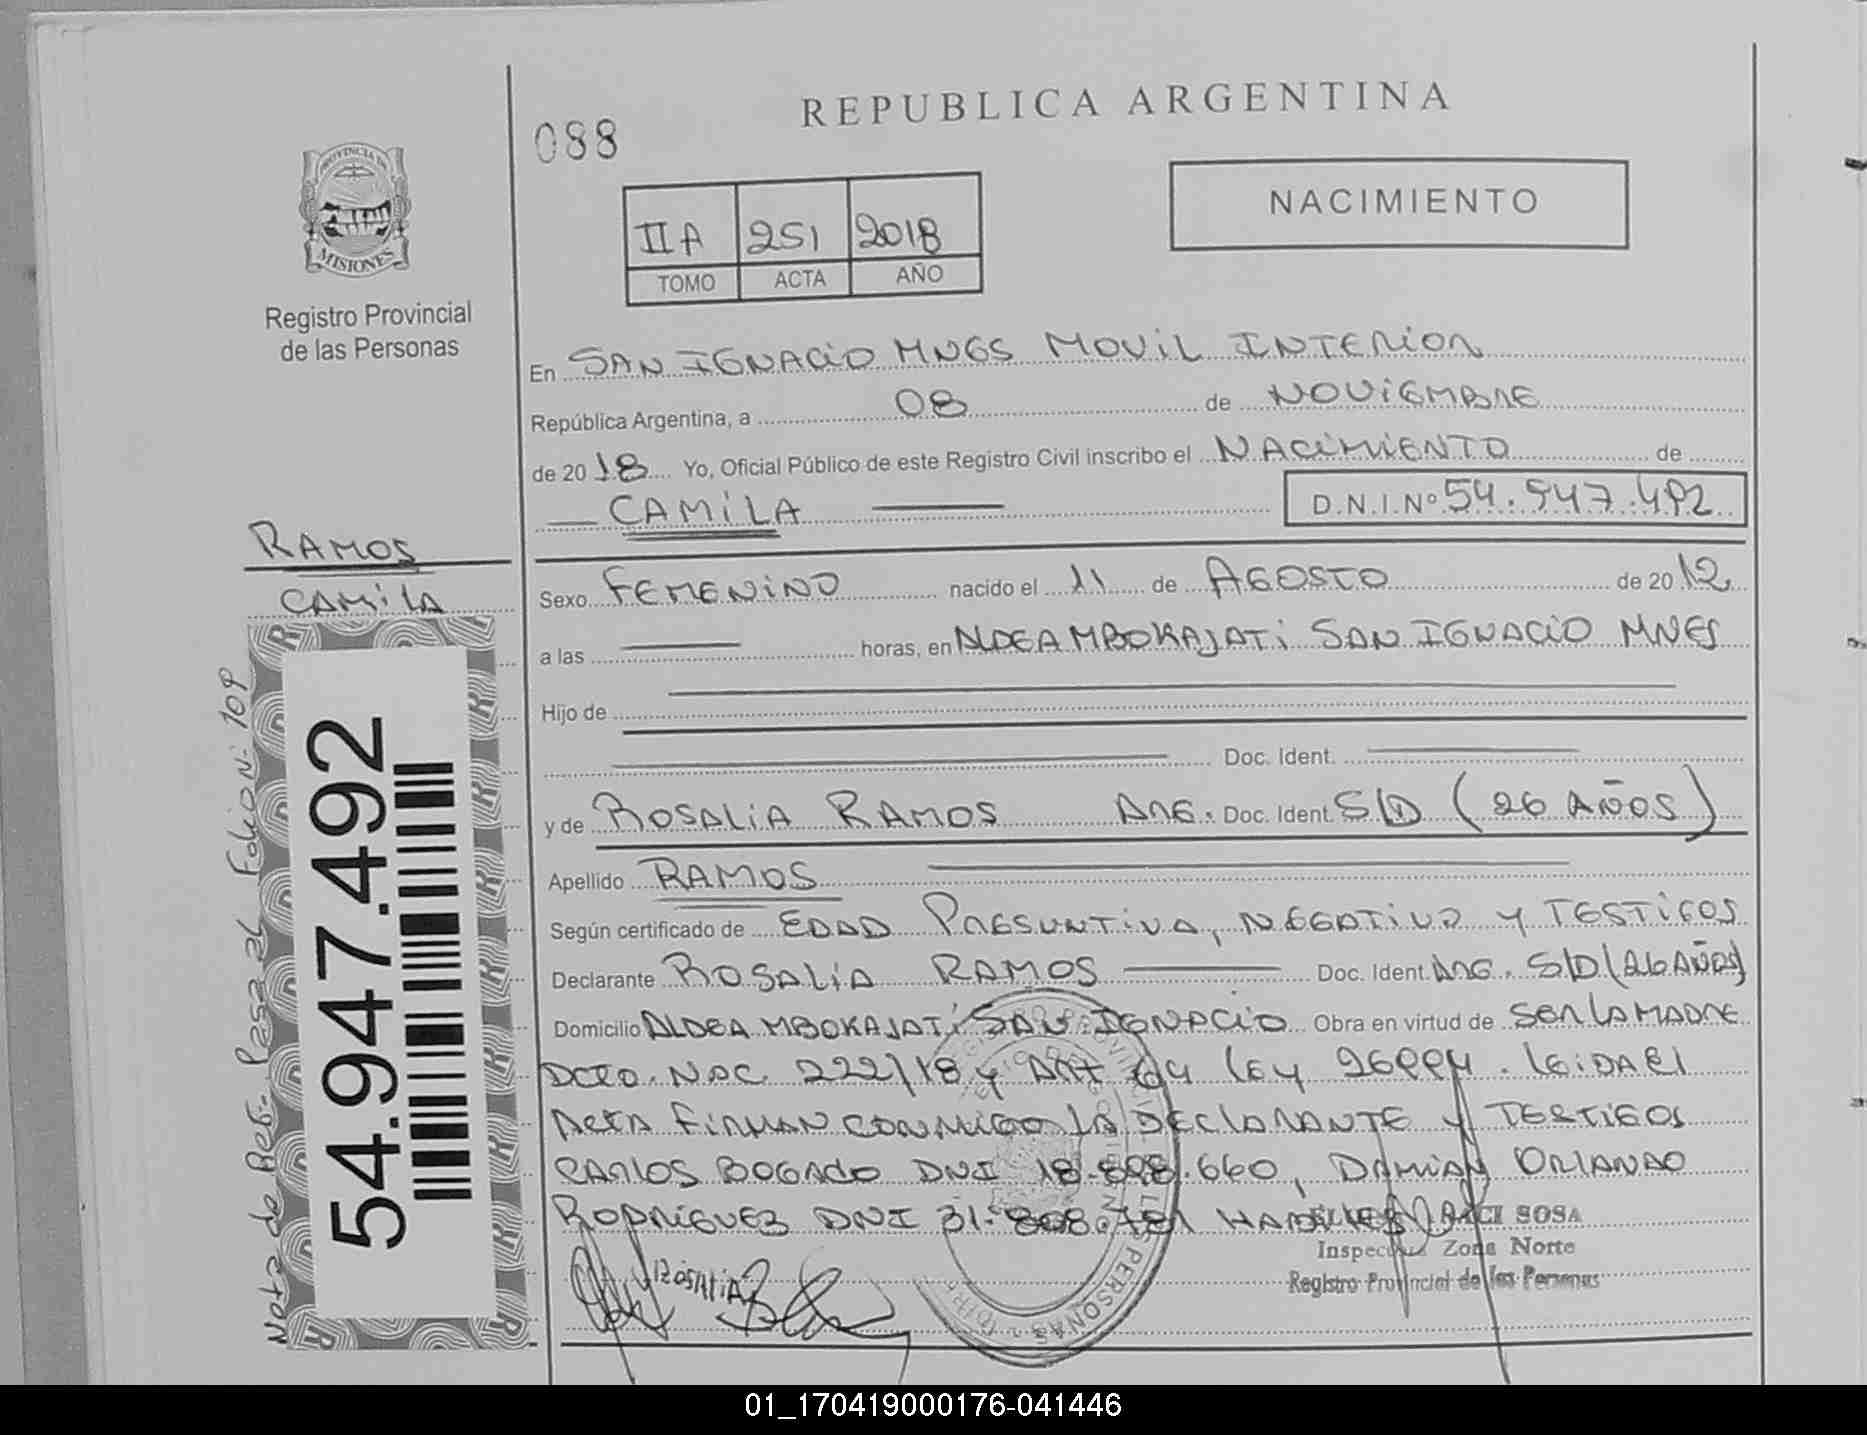 REPUBLICA ARGENTINA
088
PROVINCIA DE
MISIONES
Registro Provincial
de las Personas
NACIMIENTO
II A 251 2018
TOMO ACTA AÑO
En SAN IGNACIO MNES MOVIL INTERIOR
República Argentina, a 08 de NOVIEMBRE
de 2018 Yo, Oficial Público de este Registro Civil inscribo el NACIMIENTO de
CAMILA D.N.I.Nº 54.947.492
RAMOS
CAMILA
Sexo FEMENINO nacido el 11 de AGOSTO de 2012
a las horas, en ALDEA MBOKAJATI SAN IGNACIO MNES
Hijo de
Doc. Ident.
y de ROSALIA RAMOS ARG. Doc. Ident. S/D (26 AÑOS)
Apellido RAMOS
Según certificado de EDAD PRESUNTIVA, NEGATIVO Y TESTIGOS
Declarante ROSALIA RAMOS Doc. Ident. ARG. S/D (26 AÑOS)
Domicilio ALDEA MBOKAJATI SAN IGNACIO Obra en virtud de SER LA MADRE
DCTO. NAC. 222/18 y ART 64 LEY 26994. LEIDA EL
ACTA FIRMAN CONMIGO LA DECLARANTE Y TESTIGOS
CARLOS BOGADO DNI 18.898.660, DAMIAN ORLANDO
RODRIGUEZ DNI 31.808.781 HABILES
SOSA
Inspectora Zona Norte
Registro Provincial de las Personas
ROSALIA
54.947.492
Nota de Ref.- Pasa al Folio N: 109
01_170419000176-041446